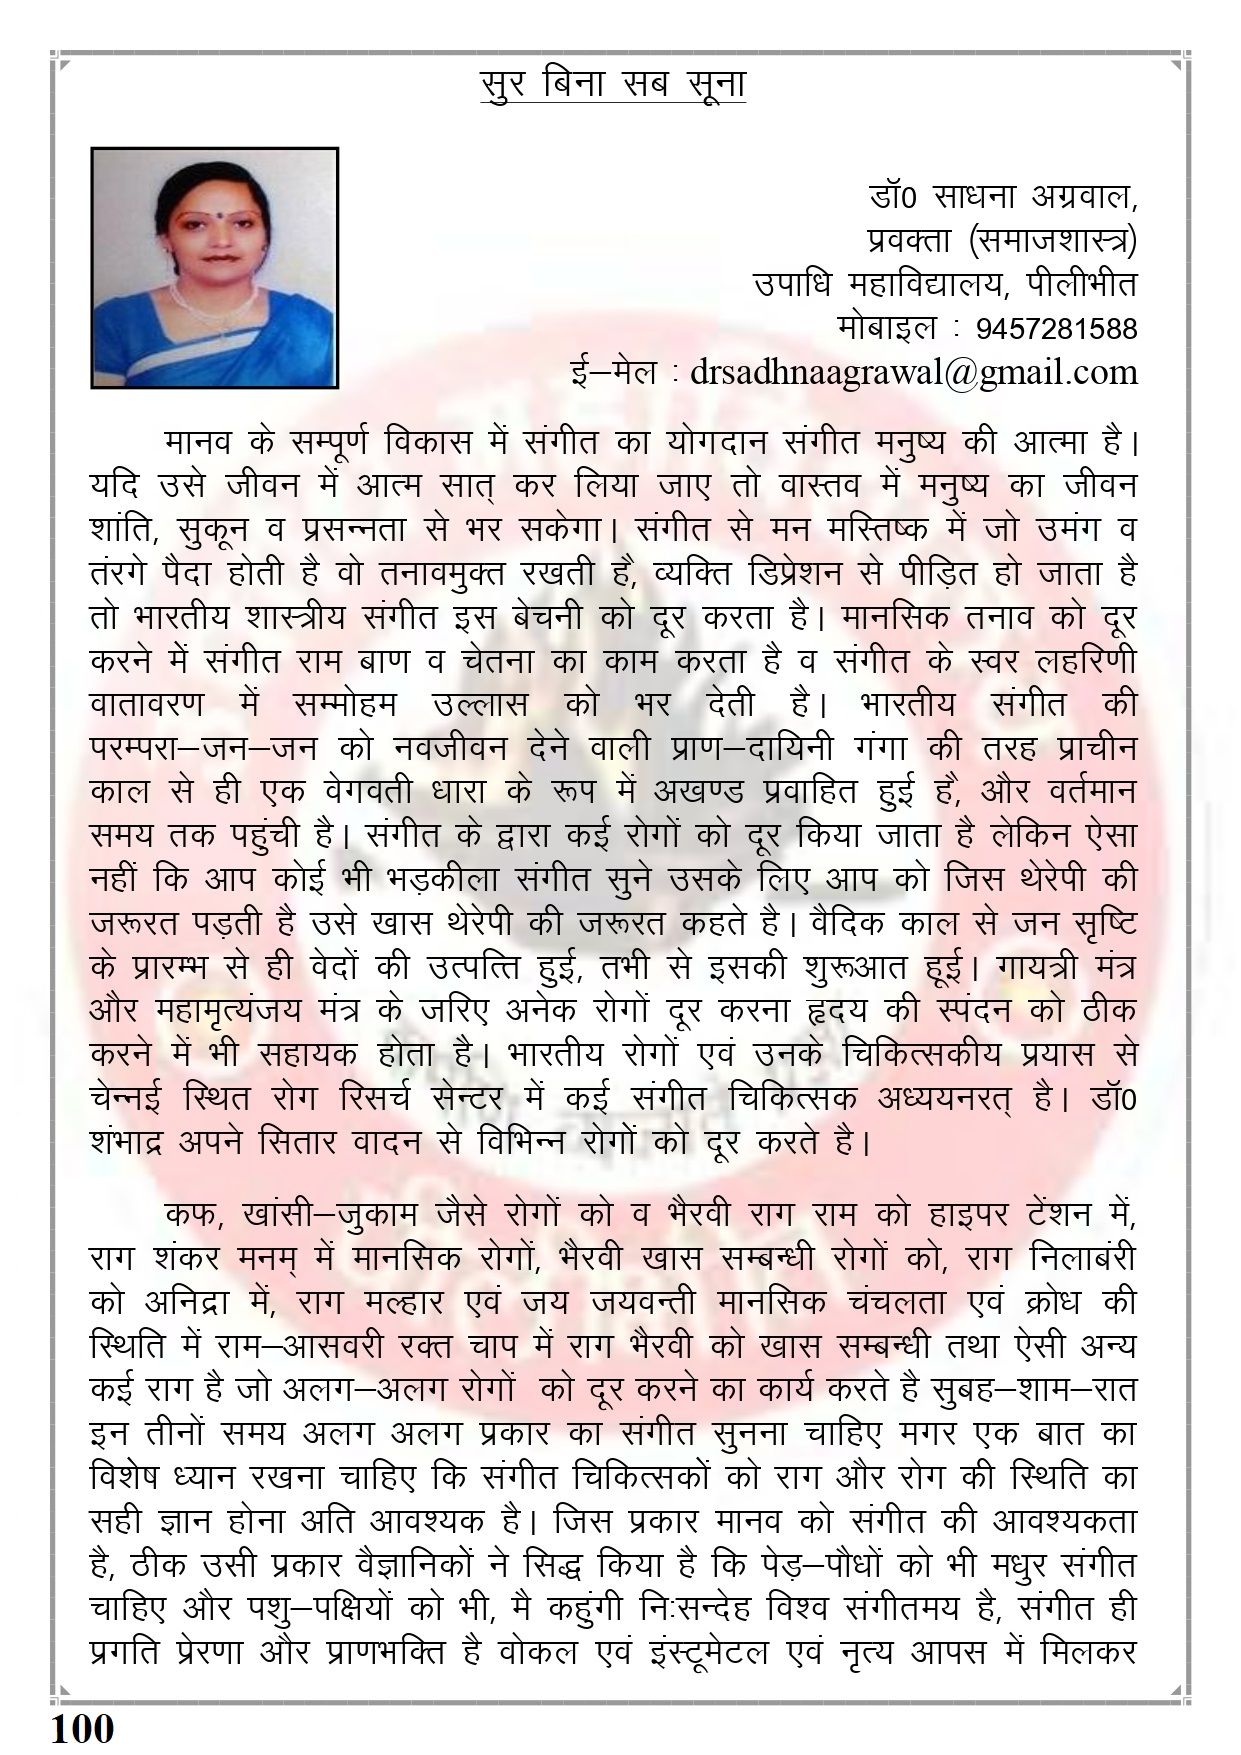 सुर बिना सब सूना
डॉ0 साधना अग्रवाल,
प्रवक्ता (समाजशास्त्र)
उपाधि महाविद्यालय, पीलीभीत
मोबाइल : 9457281588
ई–मेल : drsadhnaagrawal@gmail.com
मानव के सम्पूर्ण विकास में संगीत का योगदान संगीत मनुष्य की आत्मा है।
यदि उसे जीवन में आत्म सात् कर लिया जाए तो वास्तव में मनुष्य का जीवन
शांति, सुकून व प्रसन्नता से भर सकेगा। संगीत से मन मस्तिष्क में जो उमंग व
तंरगे पैदा होती है वो तनावमुक्त रखती है, व्यक्ति डिप्रेशन से पीड़ित हो जाता है
तो भारतीय शास्त्रीय संगीत इस बेचनी को दूर करता है। मानसिक तनाव को दूर
करने में संगीत राम बाण व चेतना का काम करता है व संगीत के स्वर लहरिणी
वातावरण में सम्मोहम उल्लास को भर देती है। भारतीय संगीत की
परम्परा–जन–जन को नवजीवन देने वाली प्राण–दायिनी गंगा की तरह प्राचीन
काल से ही एक वेगवती धारा के रूप में अखण्ड प्रवाहित हुई है, और वर्तमान
समय तक पहुंची है। संगीत के द्वारा कई रोगों को दूर किया जाता है लेकिन ऐसा
नहीं कि आप कोई भी भड़कीला संगीत सुने उसके लिए आप को जिस थेरेपी की
जरूरत पड़ती है उसे खास थेरेपी की जरूरत कहते है। वैदिक काल से जन सृष्टि
के प्रारम्भ से ही वेदों की उत्पत्ति हुई, तभी से इसकी शुरूआत हूई। गायत्री मंत्र
और महामृत्यंजय मंत्र के जरिए अनेक रोगों दूर करना हृदय की स्पंदन को ठीक
करने में भी सहायक होता है। भारतीय रोगों एवं उनके चिकित्सकीय प्रयास से
चेन्नई स्थित रोग रिसर्च सेन्टर में कई संगीत चिकित्सक अध्ययनरत् है। डॉ0
शंभाद्र अपने सितार वादन से विभिन्न रोगों को दूर करते है।
कफ, खांसी–जुकाम जैसे रोगों को व भैरवी राग राम को हाइपर टेंशन में,
राग शंकर मनम् में मानसिक रोगों, भैरवी खास सम्बन्धी रोगों को, राग निलाबंरी
को अनिद्रा में, राग मल्हार एवं जय जयवन्ती मानसिक चंचलता एवं क्रोध की
स्थिति में राम–आसवरी रक्त चाप में राग भैरवी को खास सम्बन्धी तथा ऐसी अन्य
कई राग है जो अलग–अलग रोगों को दूर करने का कार्य करते है सुबह–शाम–रात
इन तीनों समय अलग अलग प्रकार का संगीत सुनना चाहिए मगर एक बात का
विशेष ध्यान रखना चाहिए कि संगीत चिकित्सकों को राग और रोग की स्थिति का
सही ज्ञान होना अति आवश्यक है। जिस प्रकार मानव को संगीत की आवश्यकता
है, ठीक उसी प्रकार वैज्ञानिकों ने सिद्ध किया है कि पेड़–पौधों को भी मधुर संगीत
चाहिए और पशु–पक्षियों को भी, मै कहुंगी निःसन्देह विश्व संगीतमय है, संगीत ही
प्रगति प्रेरणा और प्राणभक्ति है वोकल एवं इंस्टूमेटल एवं नृत्य आपस में मिलकर
100